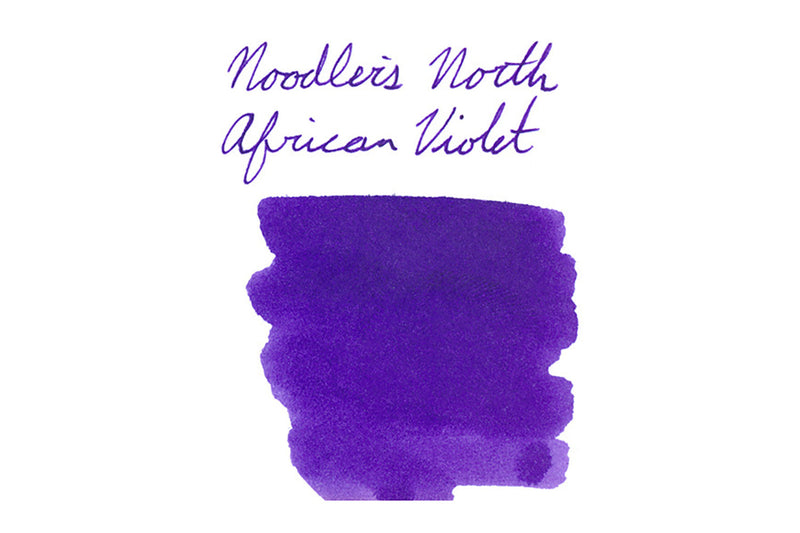 Noodler's North
African Violet